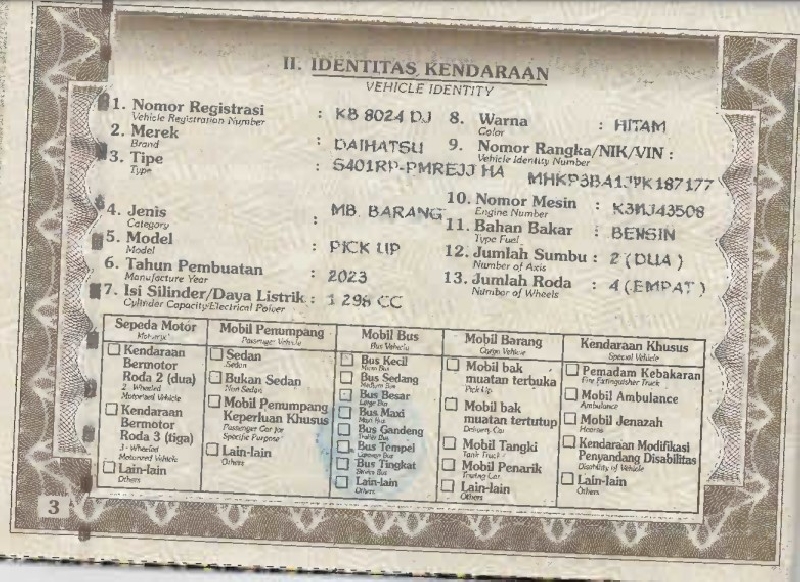 II. IDENTITAS KENDARAAN
VEHICLE IDENTITY
1. Nomor Registrasi : KB 8024 DJ
Vehicle Registration Number
2. Merek : DAIHATSU
Brand
3. Tipe : S401RP-PMREJJ HA
Type
4. Jenis : MB. BARANG
Category
5. Model : PICK UP
Model
6. Tahun Pembuatan : 2023
Manufacture Year
7. Isi Silinder/Daya Listrik : 1 298 CC
Cylinder Capacity/Electrical Power
8. Warna : HITAM
Color
9. Nomor Rangka/NIK/VIN :
Vehicle Identity Number
MHKP3BA1JPK187177
10. Nomor Mesin : K3MJ43508
Engine Number
11. Bahan Bakar : BENSIN
Type Fuel
12. Jumlah Sumbu : 2 (DUA)
Number of Axis
13. Jumlah Roda : 4 (EMPAT)
Number of Wheels
Sepeda Motor
Motorcycle
Kendaraan
Bermotor
Roda 2 (dua)
2 - Wheeled
Motorised Vehicle
Kendaraan
Bermotor
Roda 3 (tiga)
3 - Wheeled
Motorised Vehicle
Lain-lain
Others
Mobil Penumpang
Passenger Vehicle
Sedan
Sedan
Bukan Sedan
Non Sedan
Mobil Penumpang
Keperluan Khusus
Passenger Car for
Specific Purpose
Lain-lain
Others
Mobil Bus
Bus Vehicle
Bus Kecil
Micro Bus
Bus Sedang
Medium Bus
Bus Besar
Large Bus
Bus Maxi
Maxi Bus
Bus Gandeng
Trailer Bus
Bus Tempel
Bus Tingkat
Lain-lain
Others
Mobil Barang
Cargo Vehicle
Mobil bak
muatan terbuka
Pick Up
Mobil bak
muatan tertutup
Delivery Car
Mobil Tangki
Tank Truck
Mobil Penarik
Towing Car
Lain-lain
Others
Kendaraan Khusus
Special Vehicle
Pemadam Kebakaran
Fire Extinguisher Truck
Mobil Ambulance
Ambulance
Mobil Jenazah
Hearse
Kendaraan Modifikasi
Penyandang Disabilitas
Disability of Vehicle
Lain-lain
Others
3